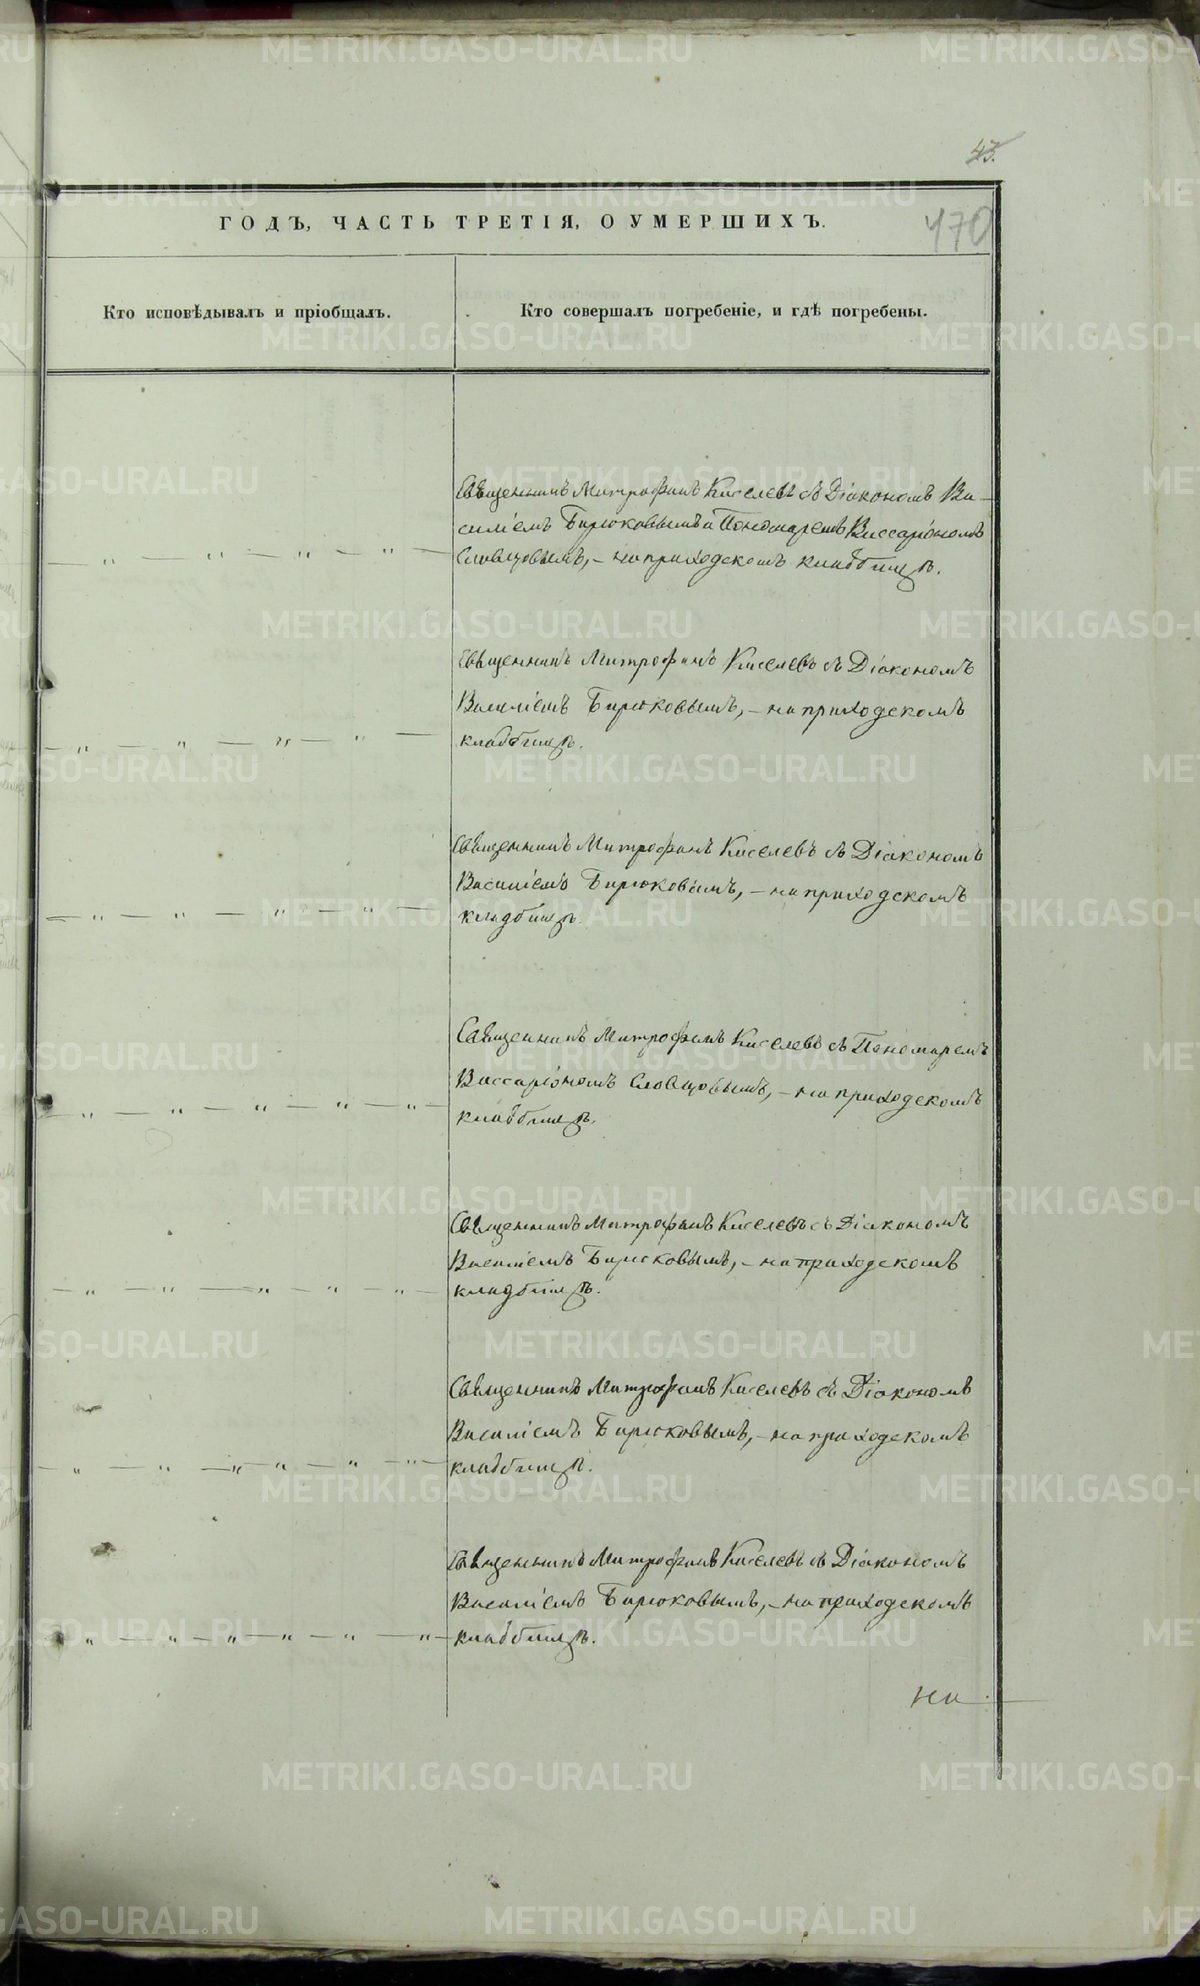 43.
ГОДЪ, ЧАСТЬ ТРЕТІЯ, О УМЕРШИХЪ.
470
Кто исповѣдывалъ и пріобщалъ.
Кто совершалъ погребеніе, и гдѣ погребены.
Священникъ Митрофанъ Киселевъ съ Діакономъ Ва-
силіемъ Бирюковымъ и Пономаремъ Виссаріономъ
Словцовымъ, – на приходскомъ кладбищѣ.
Священникъ Митрофанъ Киселевъ съ Діакономъ
Василіемъ Бирюковымъ, – на приходскомъ
кладбищѣ.
Священникъ Митрофанъ Киселевъ съ Діакономъ
Василіемъ Бирюковымъ, – на приходскомъ
кладбищѣ.
Священникъ Митрофанъ Киселевъ съ Пономаремъ
Виссаріономъ Словцовымъ, – на приходскомъ
кладбищѣ.
Священникъ Митрофанъ Киселевъ съ Діакономъ
Василіемъ Бирюковымъ, – на приходскомъ
кладбищѣ.
Священникъ Митрофанъ Киселевъ съ Діакономъ
Василіемъ Бирюковымъ, – на приходскомъ
кладбищѣ.
Священникъ Митрофанъ Киселевъ съ Діакономъ
Василіемъ Бирюковымъ, – на приходскомъ
кладбищѣ.
METRIKI.GASO-URAL.RU